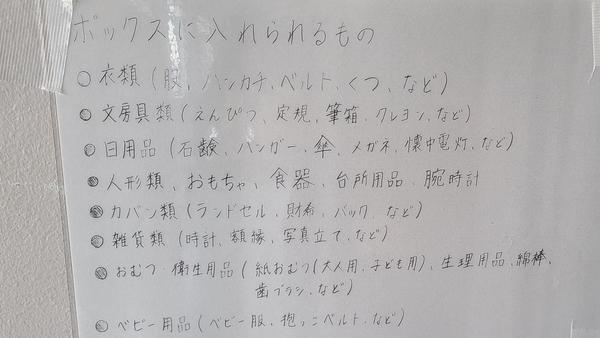 ボックスに入れられるもの
○ 衣類 (服、ハンカチ、ベルト、くつ、など)
● 文房具類 (えんぴつ、定規、筆箱、クレヨン、など)
● 日用品 (石鹸、ハンガー、傘、メガネ、懐中電灯、など)
● 人形類、おもちゃ、食器、台所用品、腕時計
● カバン類 (ランドセル、財布、バック、など)
● 雑貨類 (時計、額縁、写真立て、など)
● おむつ・衛生用品 (紙おむつ(大人用、子ども用)、生理用品、綿棒、
歯ブラシ、など)
● ベビー用品 (ベビー服、抱っこベルト、など)